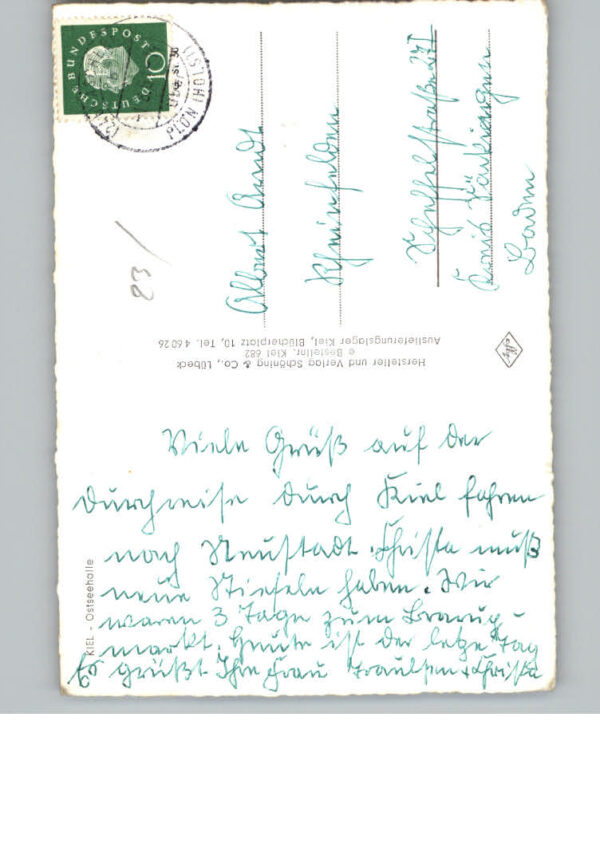 DEUTSCHE BUNDESPOST
10
PLÖN (HOLST)
23/
Albert
Rheinfelden
Scheffelstraße 27 I
Kreis Säckingen
Baden
Hersteller und Verlag Schöning & Co., Lübeck
e Bestellnr. Kiel 682
Auslieferungslager Kiel, Blücherplatz 10, Tel. 4 60 26
KIEL - Ostseehalle
Viele Grüß auf der
Durchreise durch Kiel fahren
nach Neustadt. Christa muß
neue Stiefeln haben. Wir
waren 3 Tage zum
markt. Heute ist der letze Tag
Es grüßt Ihre Frau Paulsen + Christa